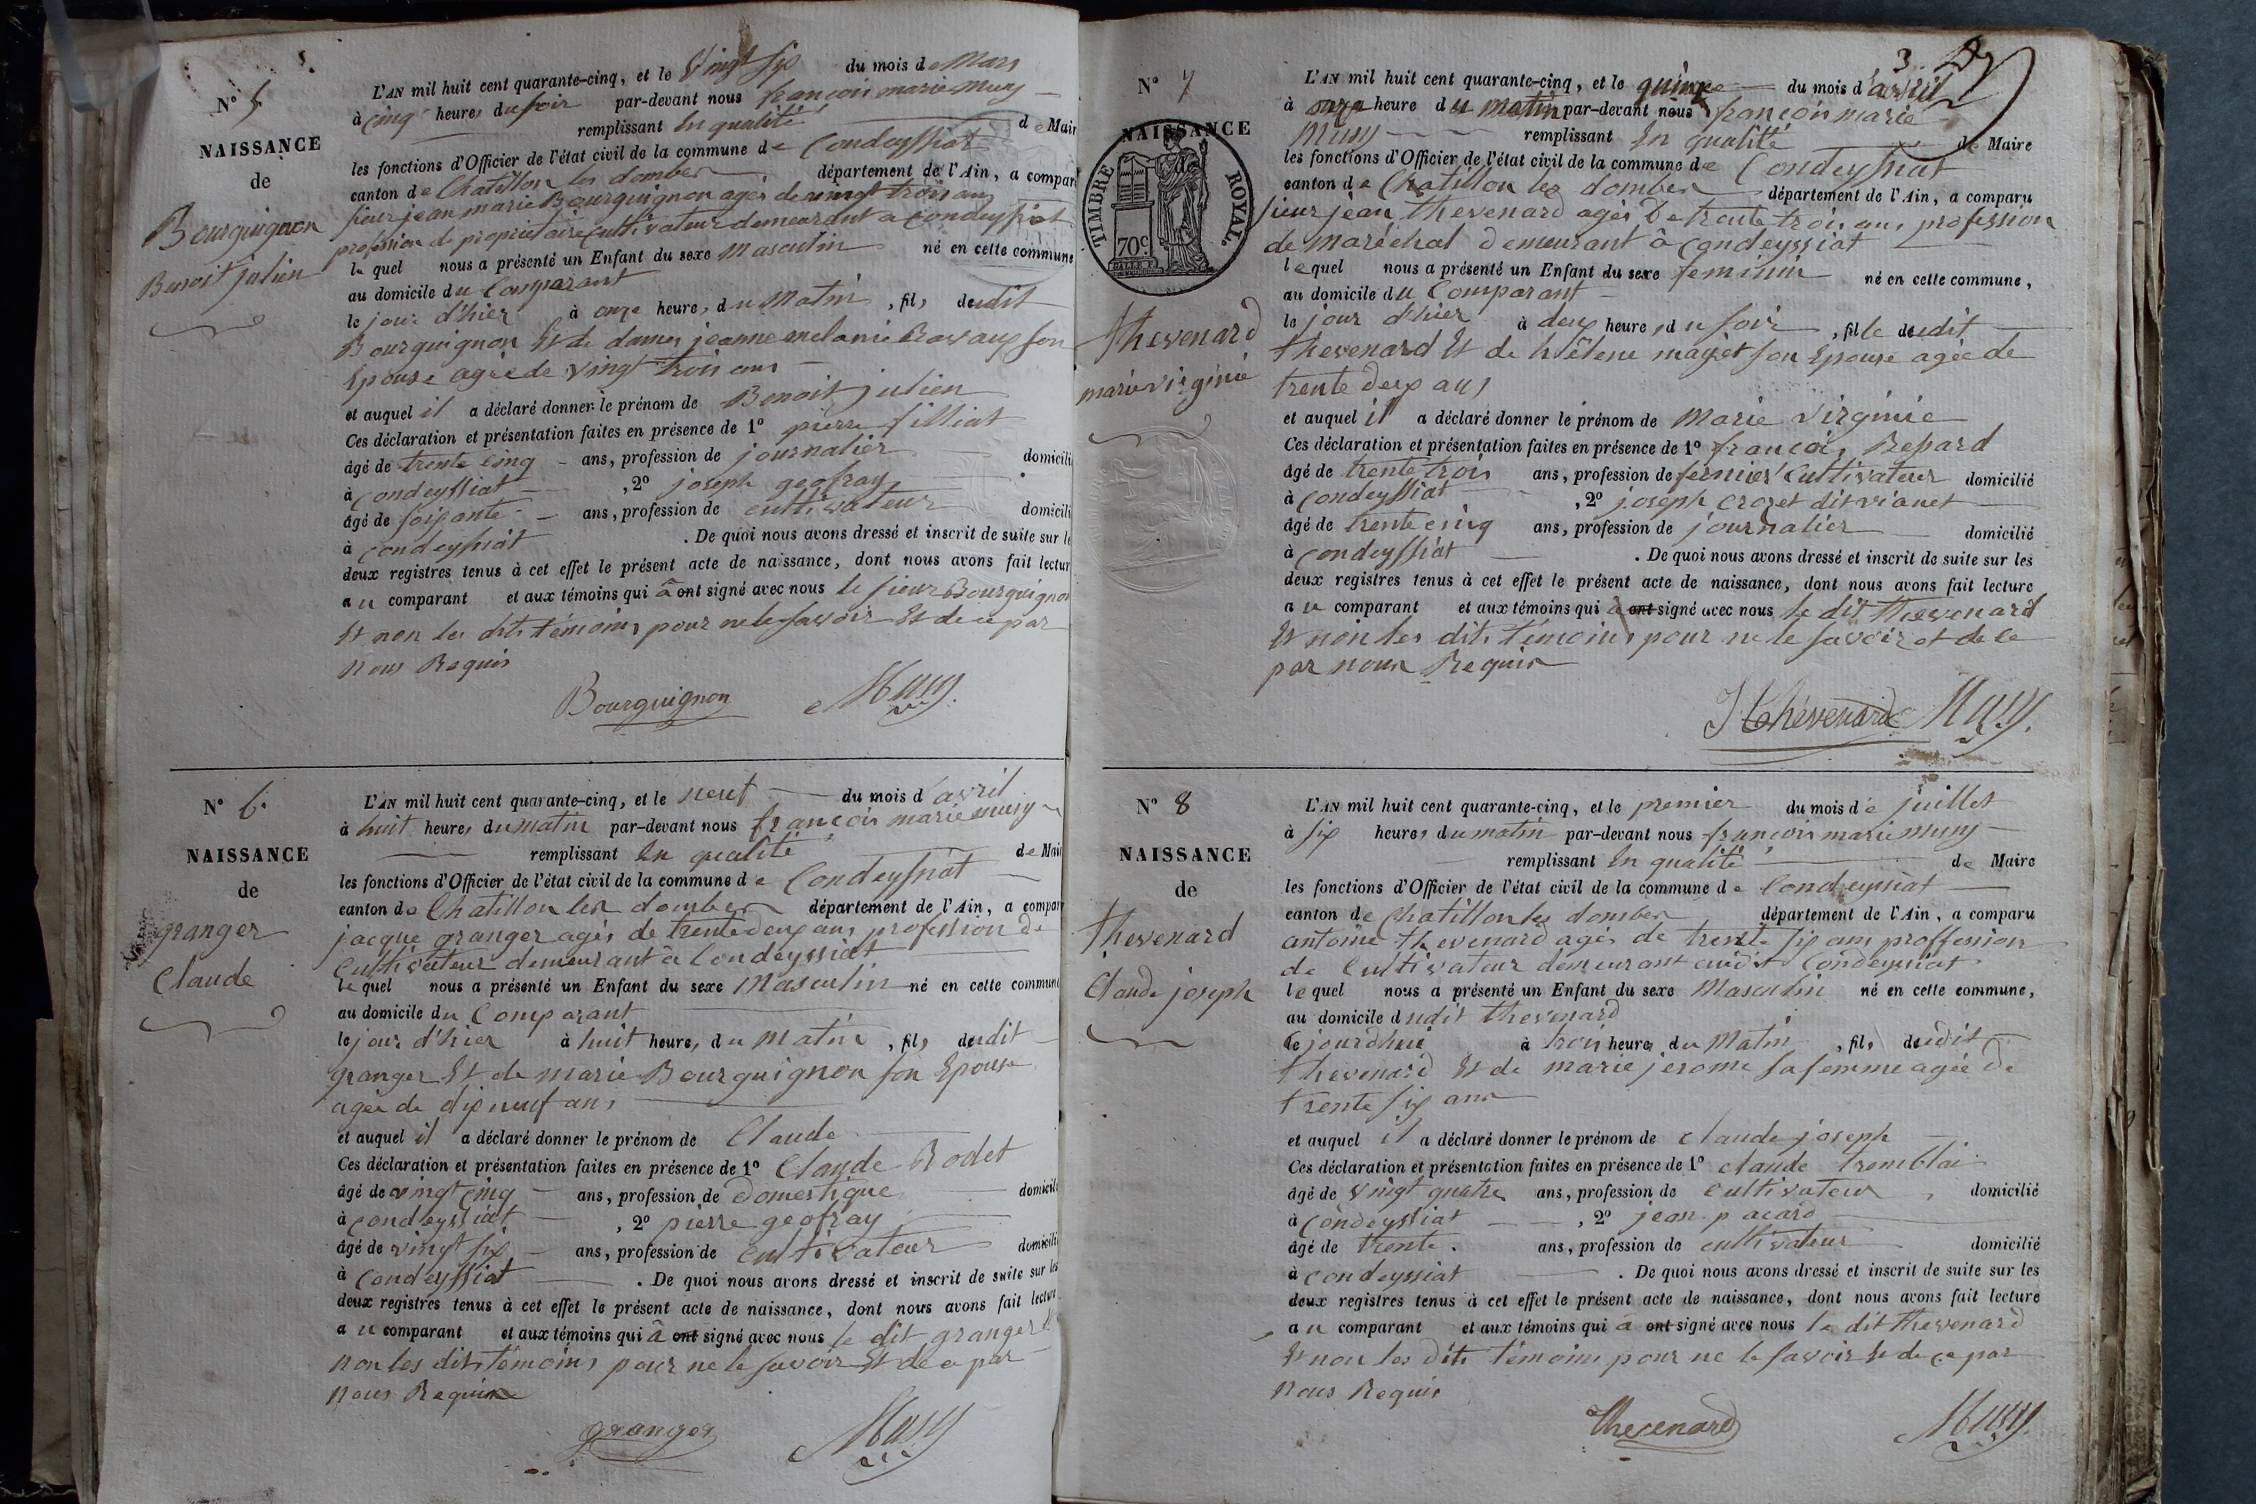 N° 5
NAISSANCE
de
Bourguignon
Benoit julien
L'AN mil huit cent quarante-cinq, et le vingt six du mois de Mars
à cinq heures du soir par-devant nous françois marie Musy
remplissant En qualité de Mair
les fonctions d'Officier de l'état civil de la commune de Condeyssiat
canton de Chatillon les dombes département de l'Ain, a compar
sieur jean marie Bourguignon agés de vingt trois ans
profession de propriétaire cultivateur demeurant a Condeyssiat
lequel nous a présenté un Enfant du sexe Masculin né en cette commune
au domicile du Comparant
le jour d'hier à onze heures du Matin, fils dudit
Bourguignon Et de dames jeanne melanie son
Epouse agée de vingt trois ans
et auquel il a déclaré donner le prénom de Benoit julien
Ces déclaration et présentation faites en présence de 1° pierre filliat
âgé de trente cinq ans, profession de journalier domicili
à Condeyssiat , 2° joseph geofray
âgé de soixante ans, profession de cultivateur domicili
à Condeyssiat . De quoi nous avons dressé et inscrit de suite sur l
deux registres tenus à cet effet le présent acte de naissance, dont nous avons fait lectur
au comparant et aux témoins qui â ont signé avec nous le sieur Bourguignon
Et non les dits témoins pour ne le savoir Et de ce par
Nous Requis
Bourguignon Musy
N° 6.
NAISSANCE
de
granger
Claude
L'AN mil huit cent quarante-cinq, et le neuf du mois d'avril
à huit heures du matin par-devant nous françois marie musy
remplissant En qualité de Mair
les fonctions d'Officier de l'état civil de la commune de Condeyssiat
canton de Chatillon les dombes département de l'Ain, a compar
jacque granger agés de trente deux ans profession de
Cultivateur demeurant à Condeyssiat
lequel nous a présenté un Enfant du sexe Masculin né en cette commune
au domicile du Comparant
le jour d'hier à huit heures du Matin, fils dudit
granger Et de marie Bourguignon son Epouse
agée de dix neuf ans
et auquel il a déclaré donner le prénom de Claude
Ces déclaration et présentation faites en présence de 1° Claude Rodet
âgé de vingt cinq ans, profession de Domestique domicili
à Condeyssiat , 2° pierre geofray
âgé de vingt six ans, profession de cultivateur domicili
à Condeyssiat . De quoi nous avons dressé et inscrit de suite sur les
deux registres tenus à cet effet le présent acte de naissance, dont nous avons fait lecture
au comparant et aux témoins qui â ont signé avec nous le dit granger Et
non les dits témoins pour ne le savoir Et de ce par
Nous Requis
granger Musy
3
N° 7
NAISSANCE
TIMBRE ROYAL.
70c
thevenard
marie virginie
L'AN mil huit cent quarante-cinq, et le quinze du mois d'avril
à onze heure du matin par-devant nous françois marie
Musy remplissant En qualité de Maire
les fonctions d'Officier de l'état civil de la commune de Condeyssiat
canton de Chatillon les dombes département de l'Ain, a comparu
sieur jean thevenard agés De trente trois ans profession
de maréchal demeurant à Condeyssiat
lequel nous a présenté un Enfant du sexe feminin né en cette commune,
au domicile du Comparant
le jour d'hier à deux heures du soir, fille dudit
thevenard Et de hélene mayet son Epouse agée de
trente deux ans
et auquel il a déclaré donner le prénom de Marie virginie
Ces déclaration et présentation faites en présence de 1° françois Repard
âgé de trente trois ans, profession de fermier Cultivateur domicilié
à Condeyssiat , 2° joseph crozet dit vianet
âgé de trente cinq ans, profession de journalier domicilié
à Condeyssiat . De quoi nous avons dressé et inscrit de suite sur les
deux registres tenus à cet effet le présent acte de naissance, dont nous avons fait lecture
au comparant et aux témoins qui a ont signé avec nous le dit thevenard
Et non les dits témoins pour ne le savoir et de ce
par nous Requis
Thévenard Musy
N° 8
NAISSANCE
de
thevenard
Claude joseph
L'AN mil huit cent quarante-cinq, et le premier du mois de juillet
à six heures du matin par-devant nous françois marie musy
remplissant En qualité de Maire
les fonctions d'Officier de l'état civil de la commune de Condeyssiat
canton de Chatillon les dombes département de l'Ain, a comparu
antoine thevenard agés de trente six ans proffession
de Cultivateur demeurant audit Condeyssiat
lequel nous a présenté un Enfant du sexe Masculin né en cette commune,
au domicile dudit thevenard
le jourdhui à trois heures du Matin, fils dudit
thevenard Et de marie jerome sa femme agée De
trente six ans
et auquel il a déclaré donner le prénom de claude joseph
Ces déclaration et présentation faites en présence de 1° claude tremblai
âgé de vingt quatre ans, profession de cultivateur, domicilié
à Condeyssiat , 2° jean pacard
âgé de trente. ans, profession de cultivateur domicilié
à condeyssiat . De quoi nous avons dressé et inscrit de suite sur les
deux registres tenus à cet effet le présent acte de naissance, dont nous avons fait lecture
au comparant et aux témoins qui a ont signé avec nous le dit thevenard
Et non les dits témoins pour ne le savoir Et de ce par
Nous Requis
thevenard Musy